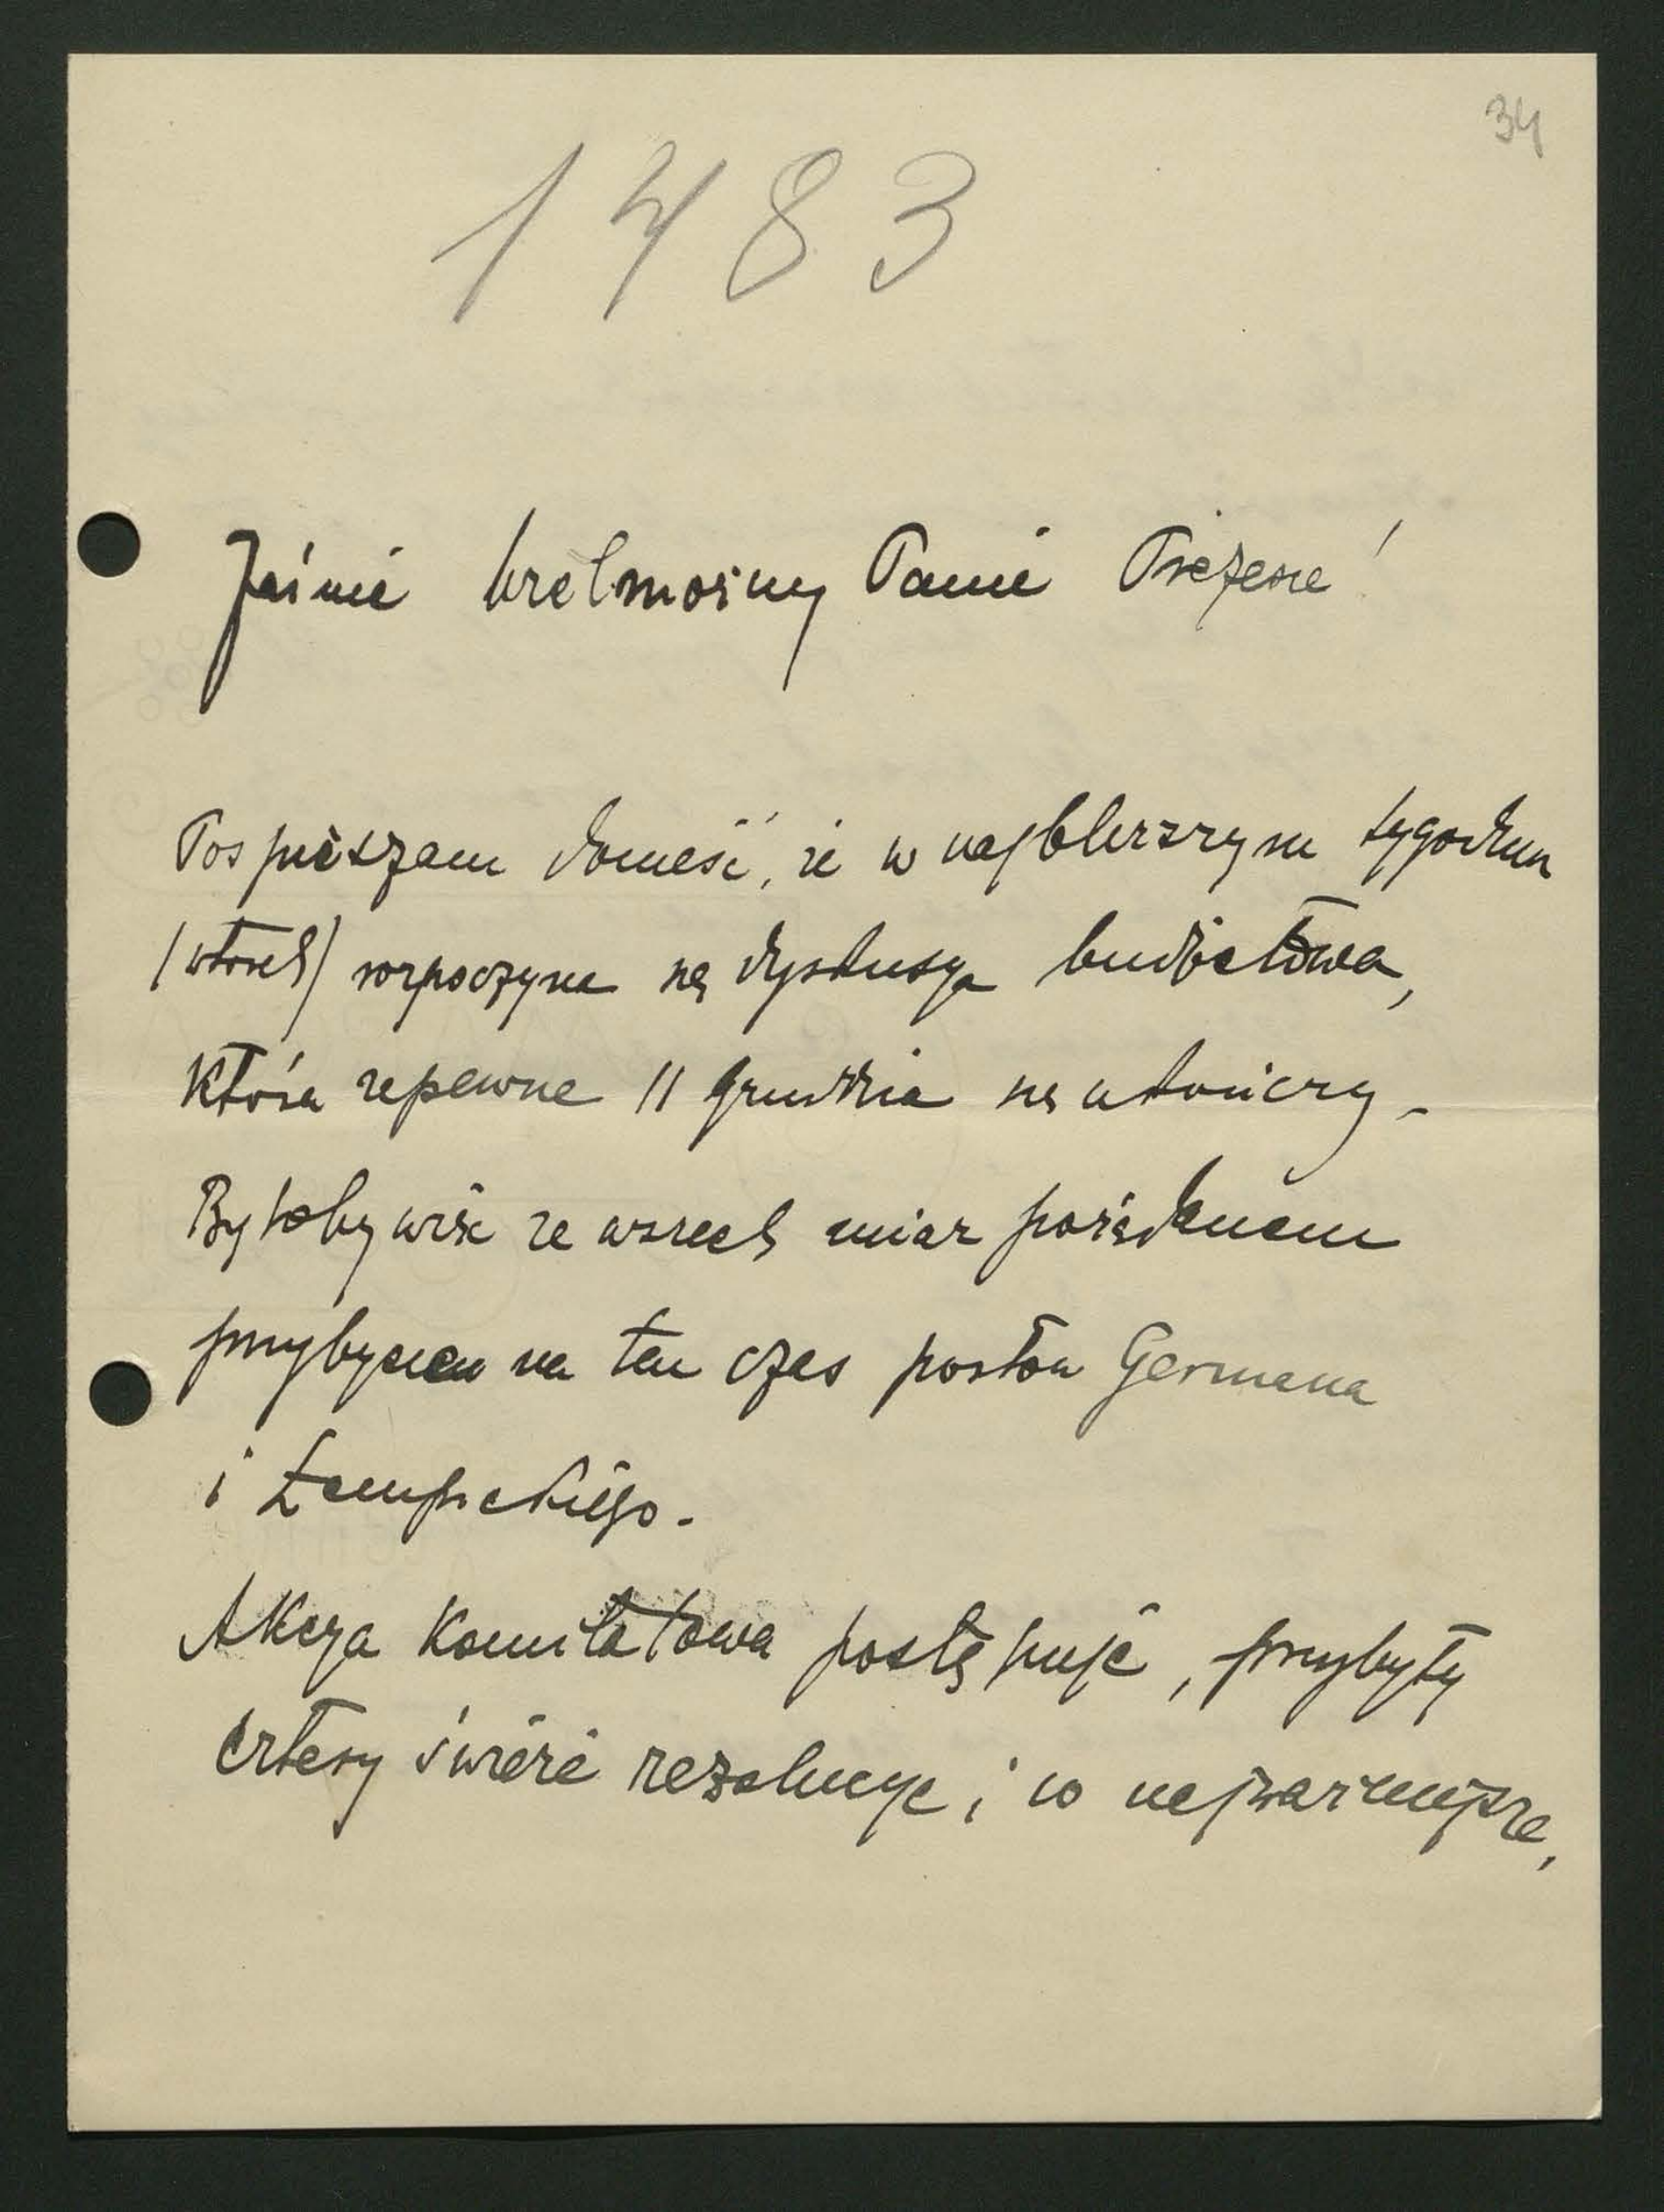 34
1483
Jaśnie Wielmożny Panie Prezesie!
Pospieszam donieść, że w najbliższym tygodniu
(wtorek) rozpoczyna się dyskusya budżetowa,
która zapewne 11 grudnia się ukończy –
Byłoby więc ze wszech miar pożądanem
przybycie na ten czas posłów Germana
i Łempickiego.
Akcya Komitatowa postępuje, przybyły
cztery świeże rezolucye, i co najważniejsze,